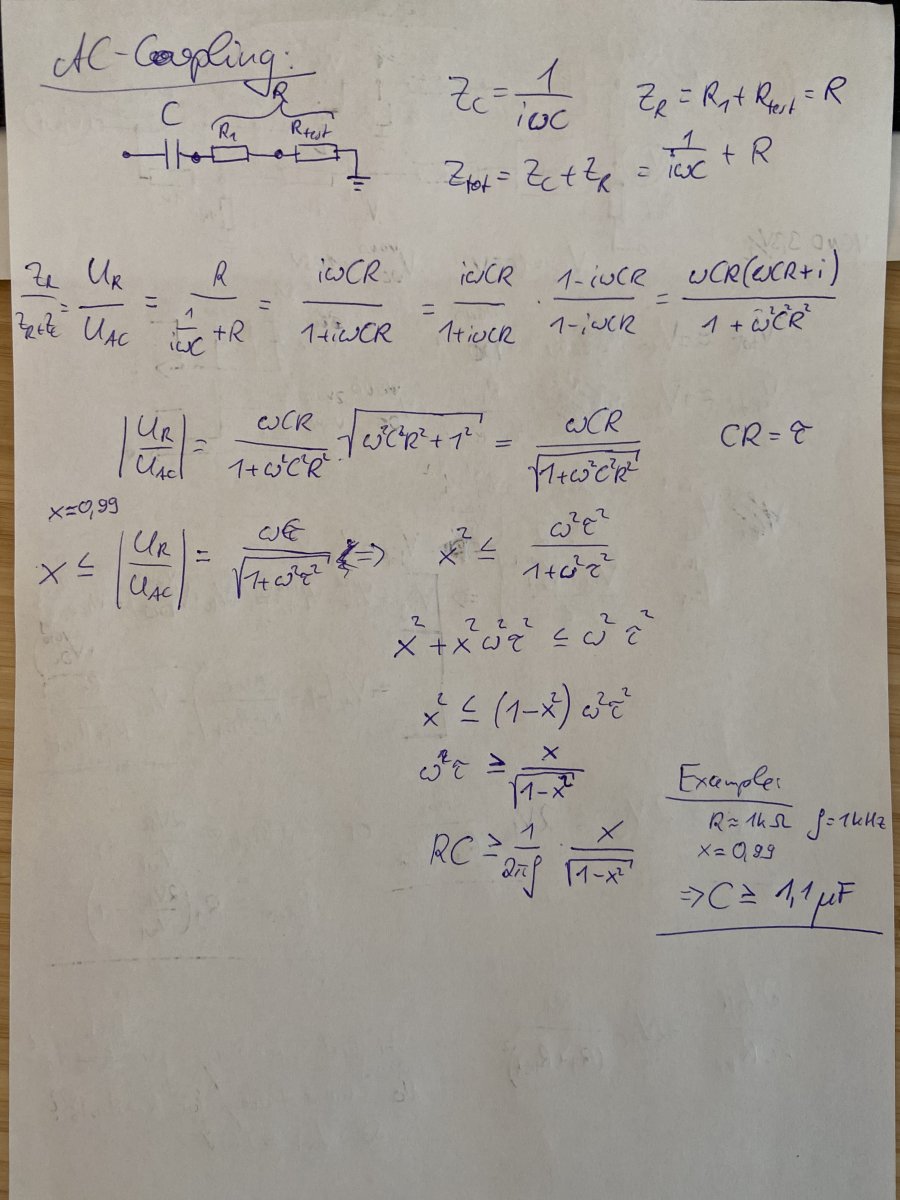 AC-Coupling:
Z_C = 1/(iωC)   Z_R = R_1 + R_test = R
R
C   R_1   R_test
Z_tot = Z_C + Z_R = 1/(iωC) + R
Z_R/(Z_R+Z_C) = U_R/U_AC = R/(1/(iωC) + R) = iωCR/(1+iωCR) = iωCR/(1+iωCR) · (1-iωCR)/(1-iωCR) = ωCR(ωCR+i)/(1+ω²C²R²)
|U_R/U_AC| = ωCR/(1+ω²C²R²) · √(ω²C²R²+1²) = ωCR/√(1+ω²C²R²)   CR = τ
x=0,99
x ≤ |U_R/U_AC| = ωτ/√(1+ω²τ²) ⇔ x² ≤ ω²τ²/(1+ω²τ²)
x² + x²ω²τ² ≤ ω²τ²
x² ≤ (1-x²) ω²τ²
ωτ ≥ x/√(1-x²)
RC ≥ 1/(2πf) · x/√(1-x²)
Example:
R=1kΩ f=1kHz
x=0,99
⇒ C ≥ 1,1 µF